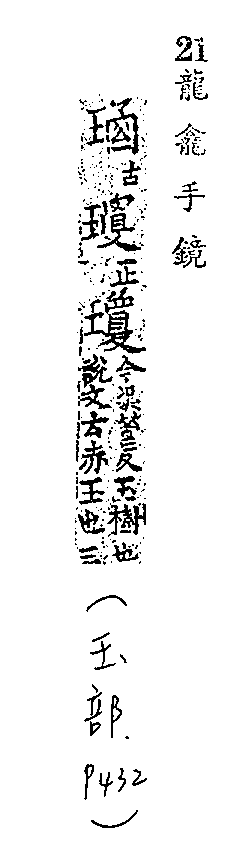 21 龍龕手鏡
古
瓊正
瓊今渠營反玉樹也
說文云赤玉也三
(玉部. P432)